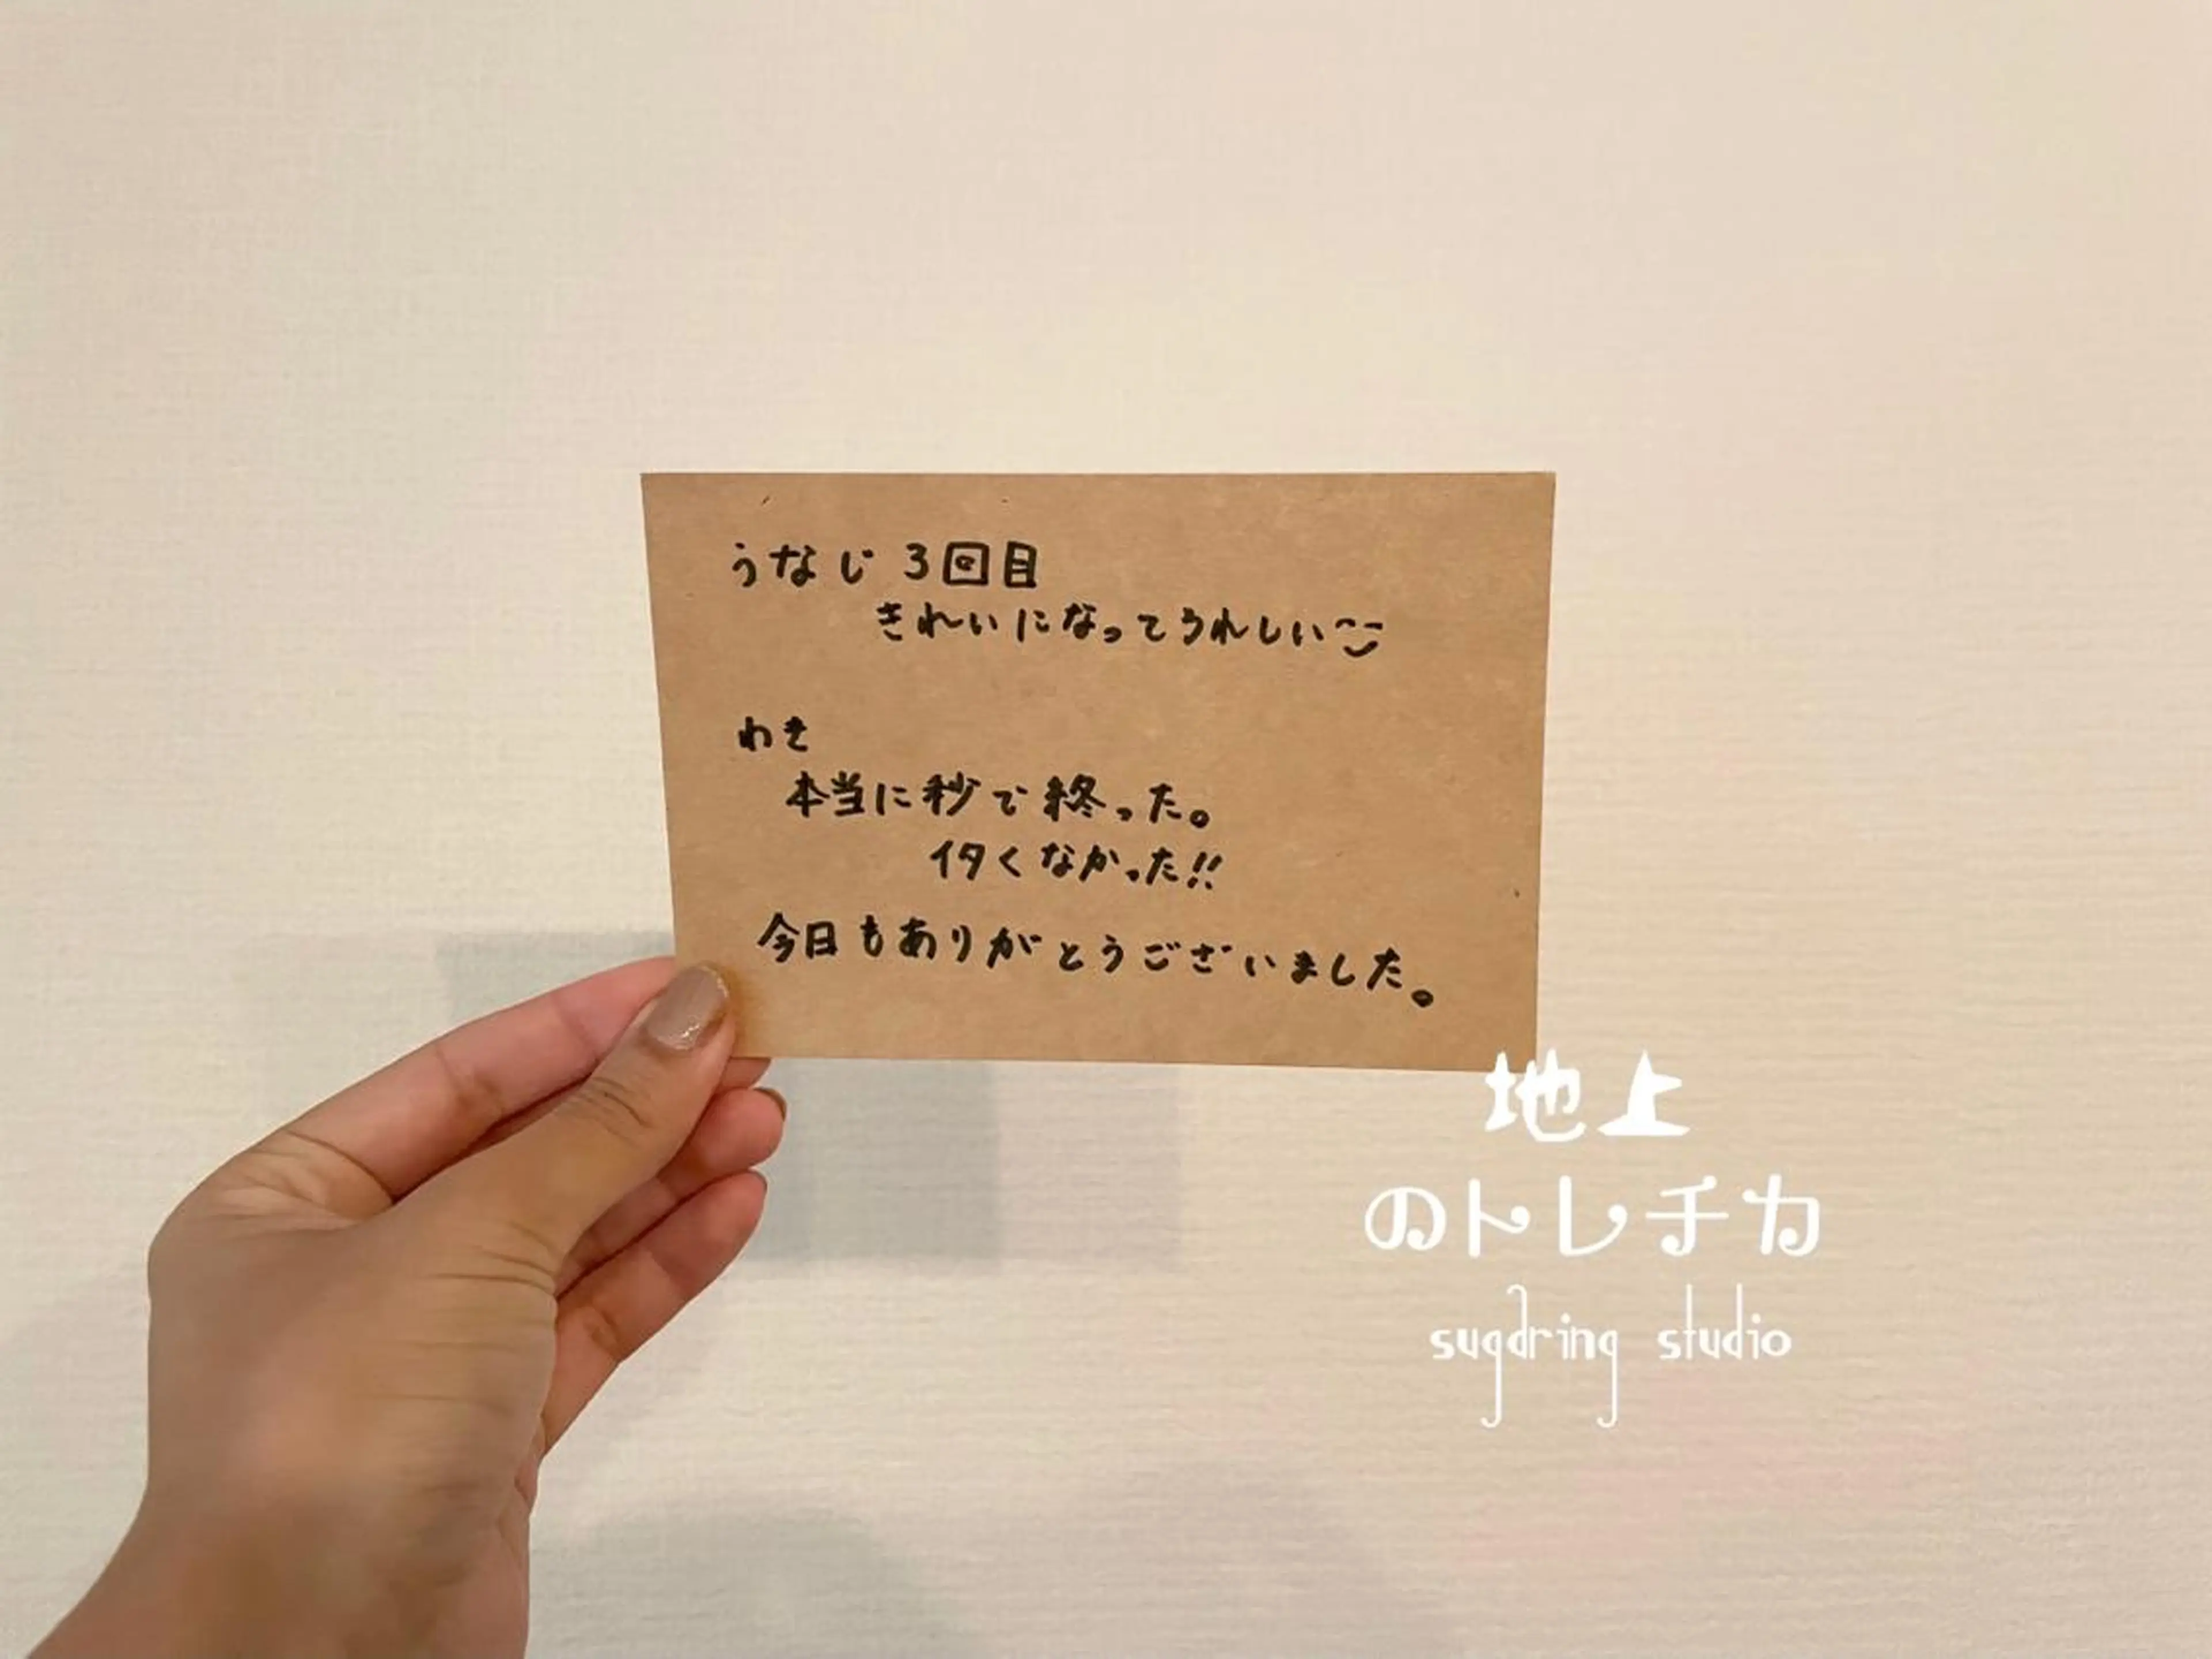 うなじ 3回目
きれいになってうれしい
わき
本当に秒で終った。
イタくなかった!!
今日もありがとうございました。
地上
のトレチカ
sugaring studio